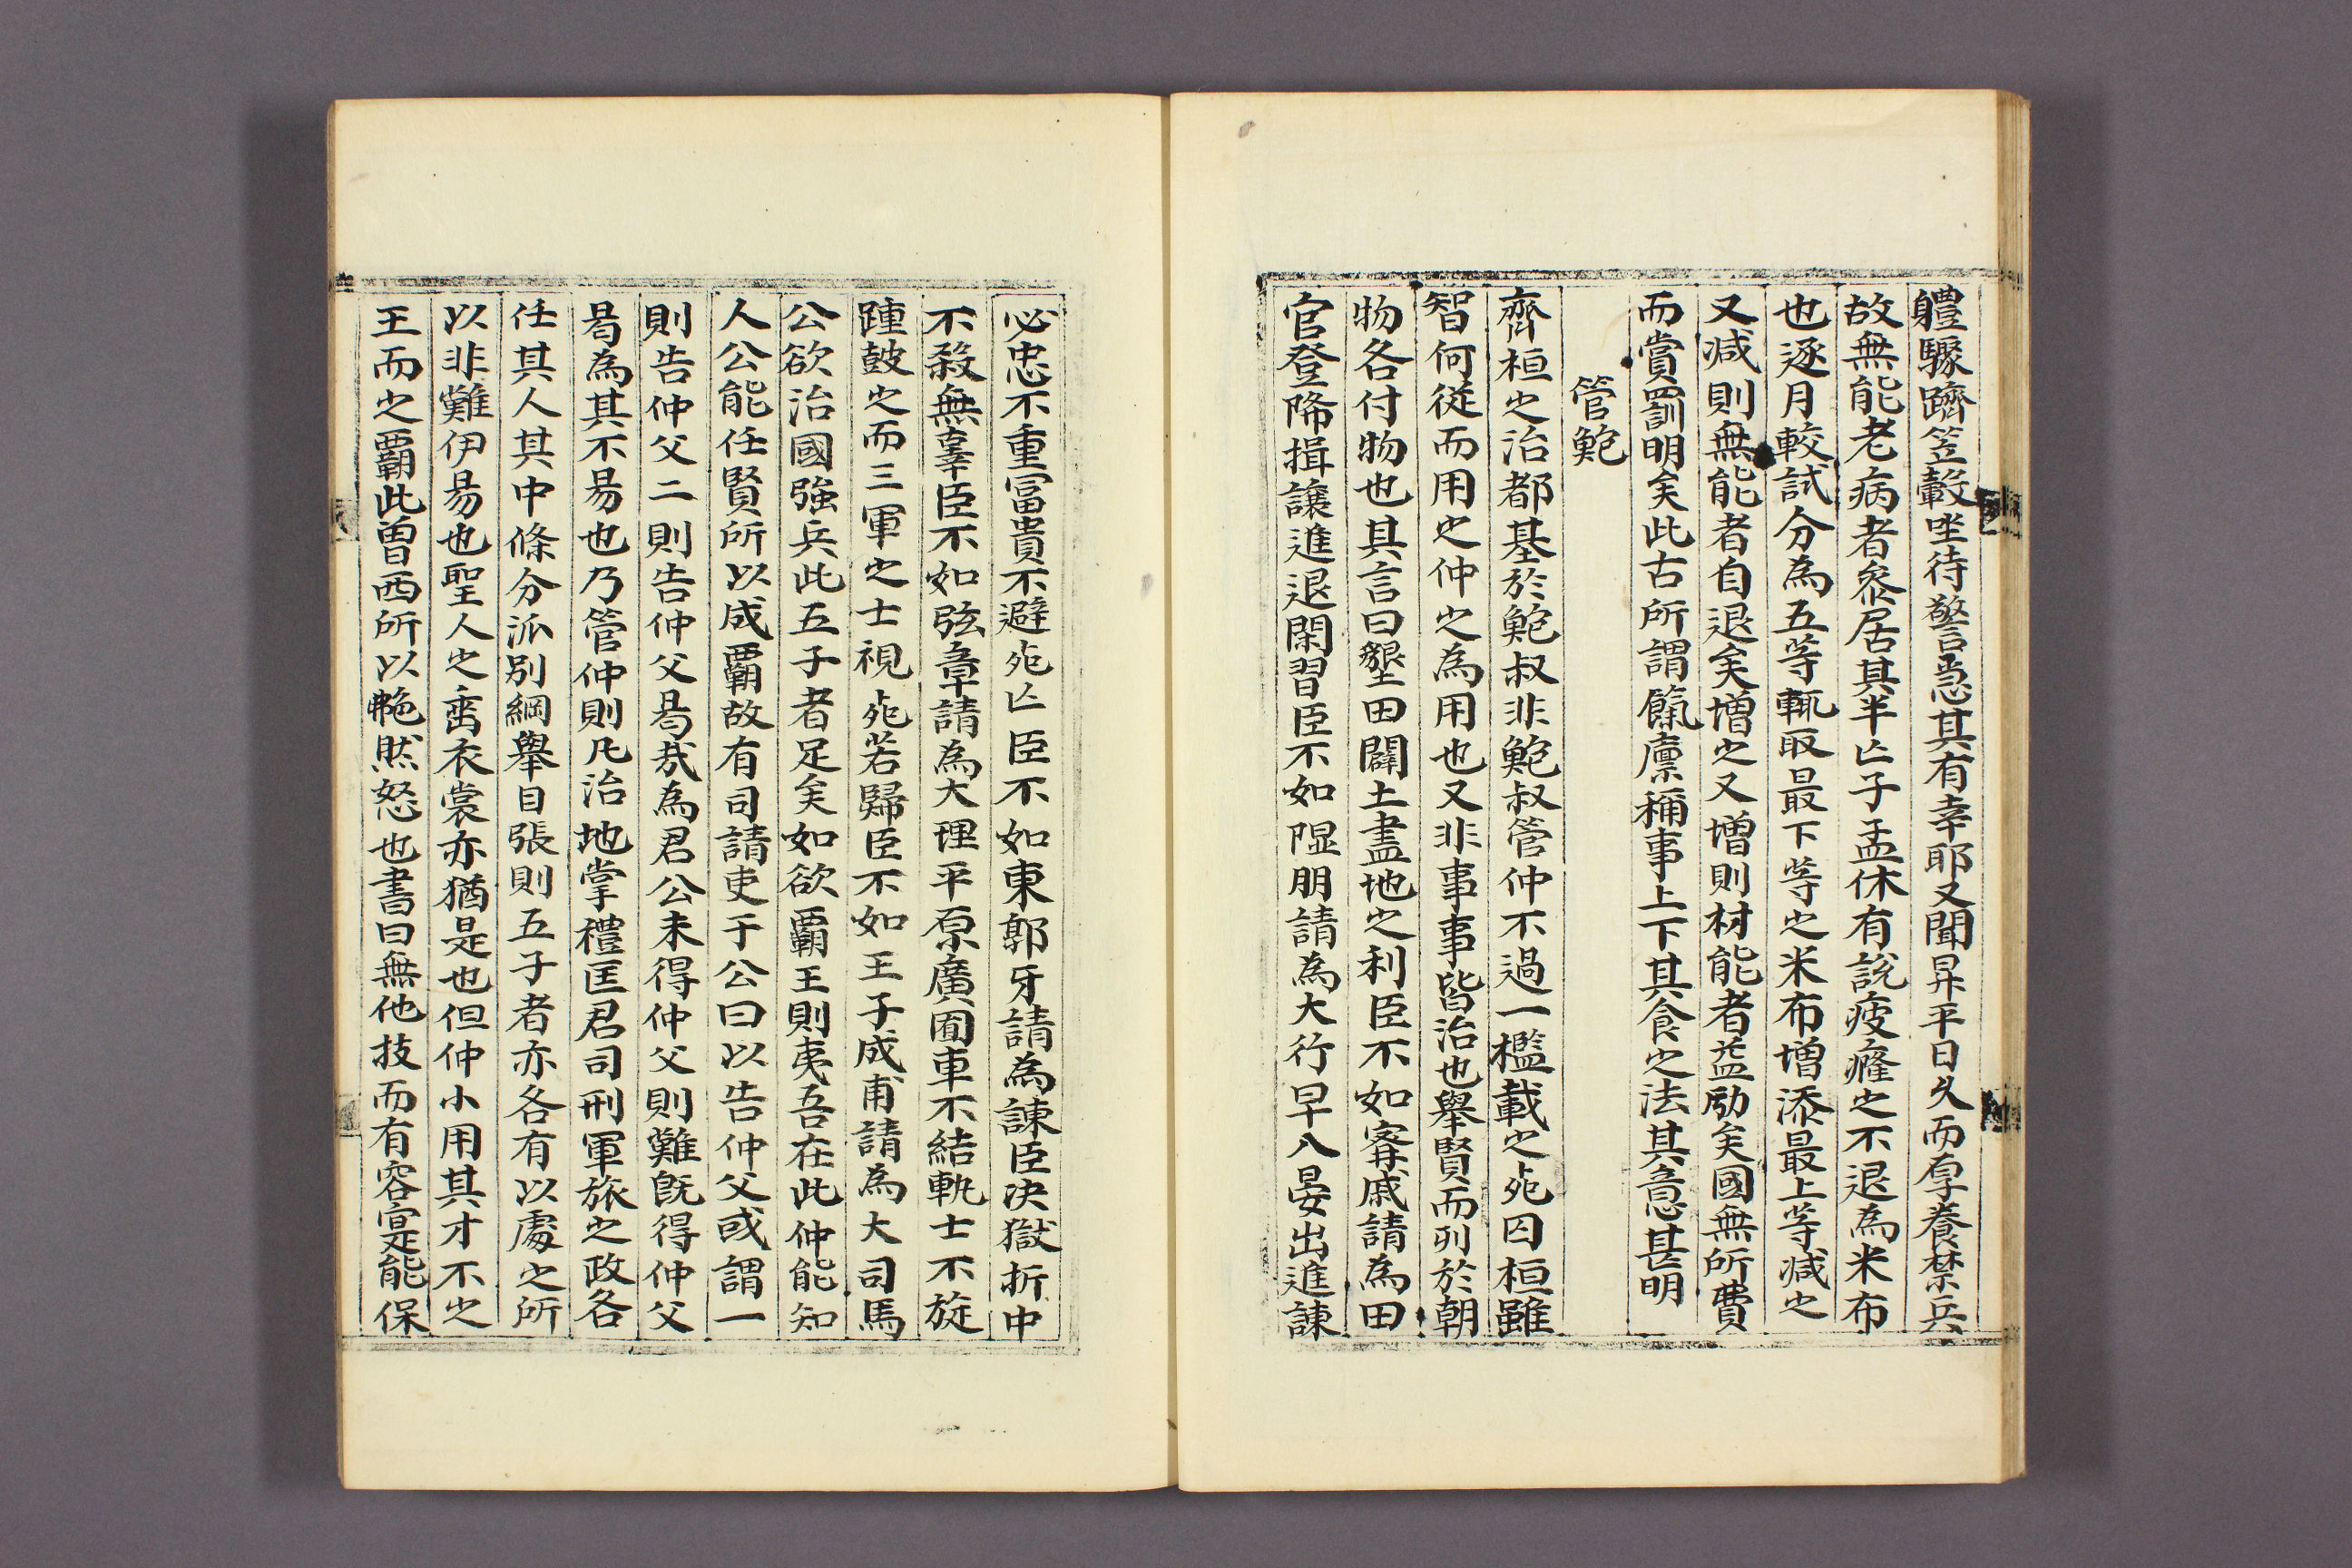 軆驟躋笠轂坐待警急其有幸耶又聞昇平日久而厚養禁兵
故無能老病者衆居其半亡子孟休有說疲癃之不退為米布
也逐月較試分為五等輒取最下等之米布增添最上等減之
又减則無能者自退矣增之又增則材能者益励矣國無所費
而賞罰明矣此古所謂餼廪稱事上下其食之法其意甚明
管鮑
齊桓之治都基於鮑叔非鮑叔管仲不過一檻載之死囚桓雖
智何從而用之仲之為用也又非事事皆治也舉賢而列於朝
物各付物也其言曰墾田闢土盡地之利臣不如寗戚請為田
官登降揖讓進退閑習臣不如隰朋請為大行早入晏出進諫
必忠不重冨貴不避死亡臣不如東郭牙請為諫臣决獄折中
不殺無辜臣不如弦章請為大理平原廣囿車不結軌士不旋
踵鼓之而三軍之士視死若歸臣不如王子成甫請為大司馬
公欲治國強兵此五子者足矣如欲覇王則夷吾在此仲能知
人公能任賢所以成覇故有司請吏于公曰以告仲父或謂一
則告仲父二則告仲父曷㦲為君公未得仲父則難旣得仲父
曷為其不易也乃管仲則凡治地掌禮匡君司刑軍旅之政各
任其人其中條分派別綱舉目張則五子者亦各有以處之所
以非難伊易也聖人之垂衣裳亦猶是也但仲小用其才不之
王而之覇此曽西所以艴然怒也書曰無他技而有容寔能保